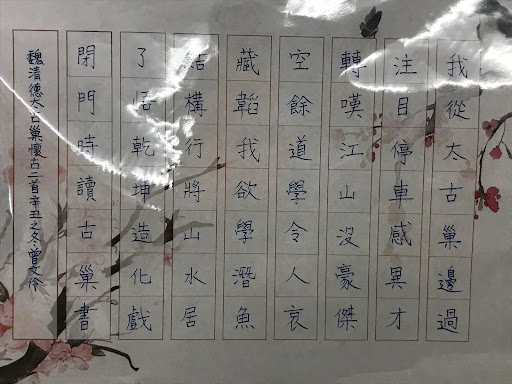 我從太古巢邊過
注目停車感異才
轉嘆江山沒豪傑
空餘道學令人哀
藏韜我欲學潛魚
結構行將山水居
了悟乾坤造化戲
閉門時讀古巢書
魏清德太古巢懷古二首辛丑之冬曾文伶